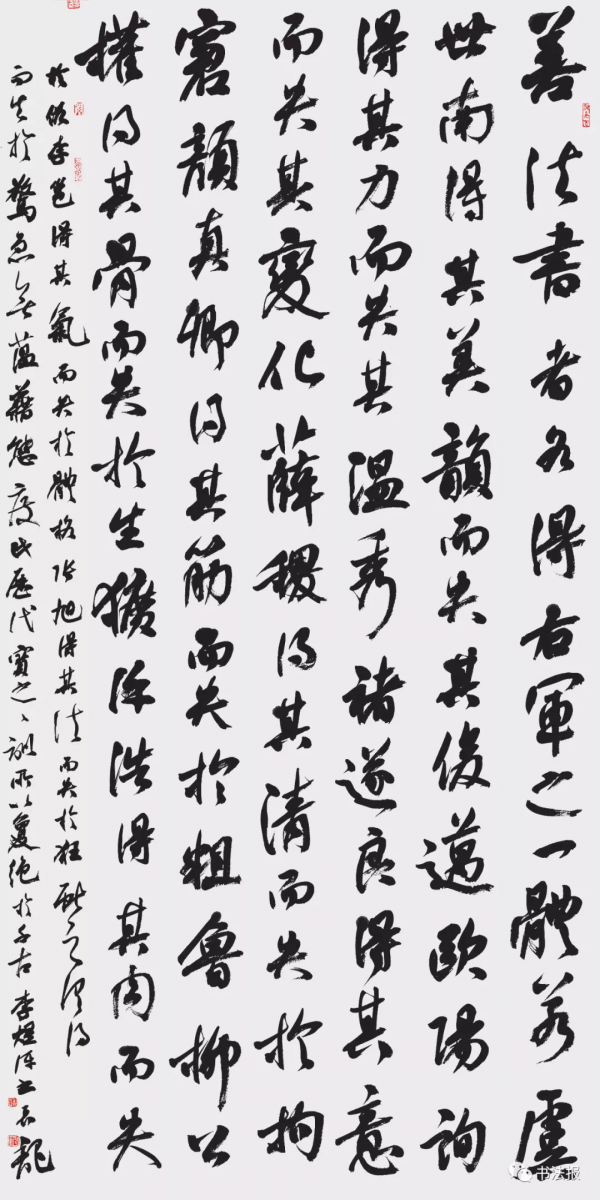 善法書者各得右軍之一體若虞
世南得其美韻而失其俊邁歐陽詢
得其力而失其溫秀褚遂良得其意
而失其變化薛稷得其清而失於拘
窘顏真卿得其筋而失於粗魯柳公
權得其骨而失於生獷徐浩得其肉而失
於俗李邕得其氣而失於體格張旭得其法而失於狂獻之俱得
而失於驚急無蘊藉態度此歷代寶之訓所以夐絕於千古 李煜評書 龍
书法报